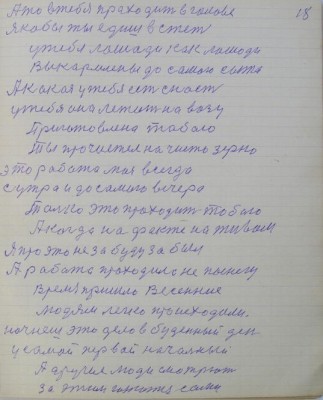 18
А то в тебя проходит в голове
Якобы ты един в стет
у тебя лошади как лошади
Выкормлены до самого сыта
А какая у тебя ест снаст
у тебя она лежит на возу
Приготовлена тобою
Ты прочистел на чисто зерно
это работа моя всегда
с утра и до самого вечера
Только это проходит тобою
А когда на факте на живом
Я про это не забуду забыл
А работа проходило не полносу
Время пришло Весенние
Людям легко происходили.
начнеш это дело в буденный ден
у самой первой начальный
А другие люди смотрют
За этим самы